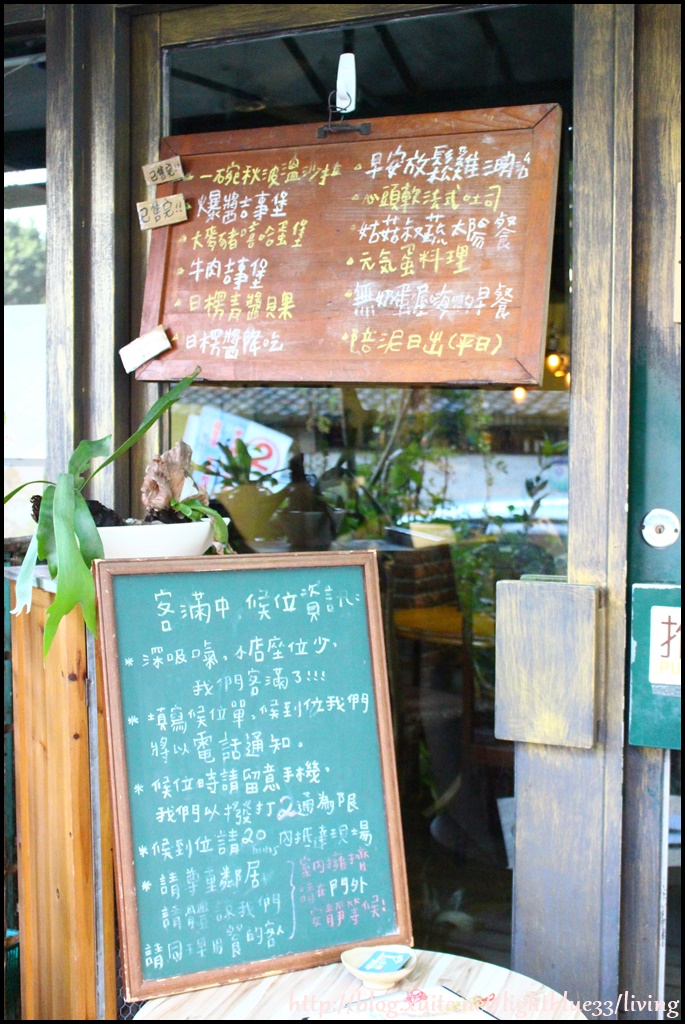 已售完!!
一碗秋波溫沙拉
已售完!!
爆醬吉事堡
大麥豬嘻哈蛋堡
牛肉吉事堡
日楞青醬貝果
日楞醬
早安放鬆雞
心頭軟法式吐司
姑菇叔蔬太陽餐
元氣蛋料理
無奶蛋屋 早餐
陪泥日出(平日)
客滿中,候位資訊:
* 深吸氣,小店座位少,
我們客滿了!!!
* 填寫候位單,候到位我們
將以電話通知。
* 候位時請留意手機,
我們以撥打2通為限
* 候到位請20mins內抵達現場
* 請尊重鄰居
請體諒我們
請同理用餐的客人
請在門外
安靜等候!
2
http://blog.xuite.net/lightblue33/living